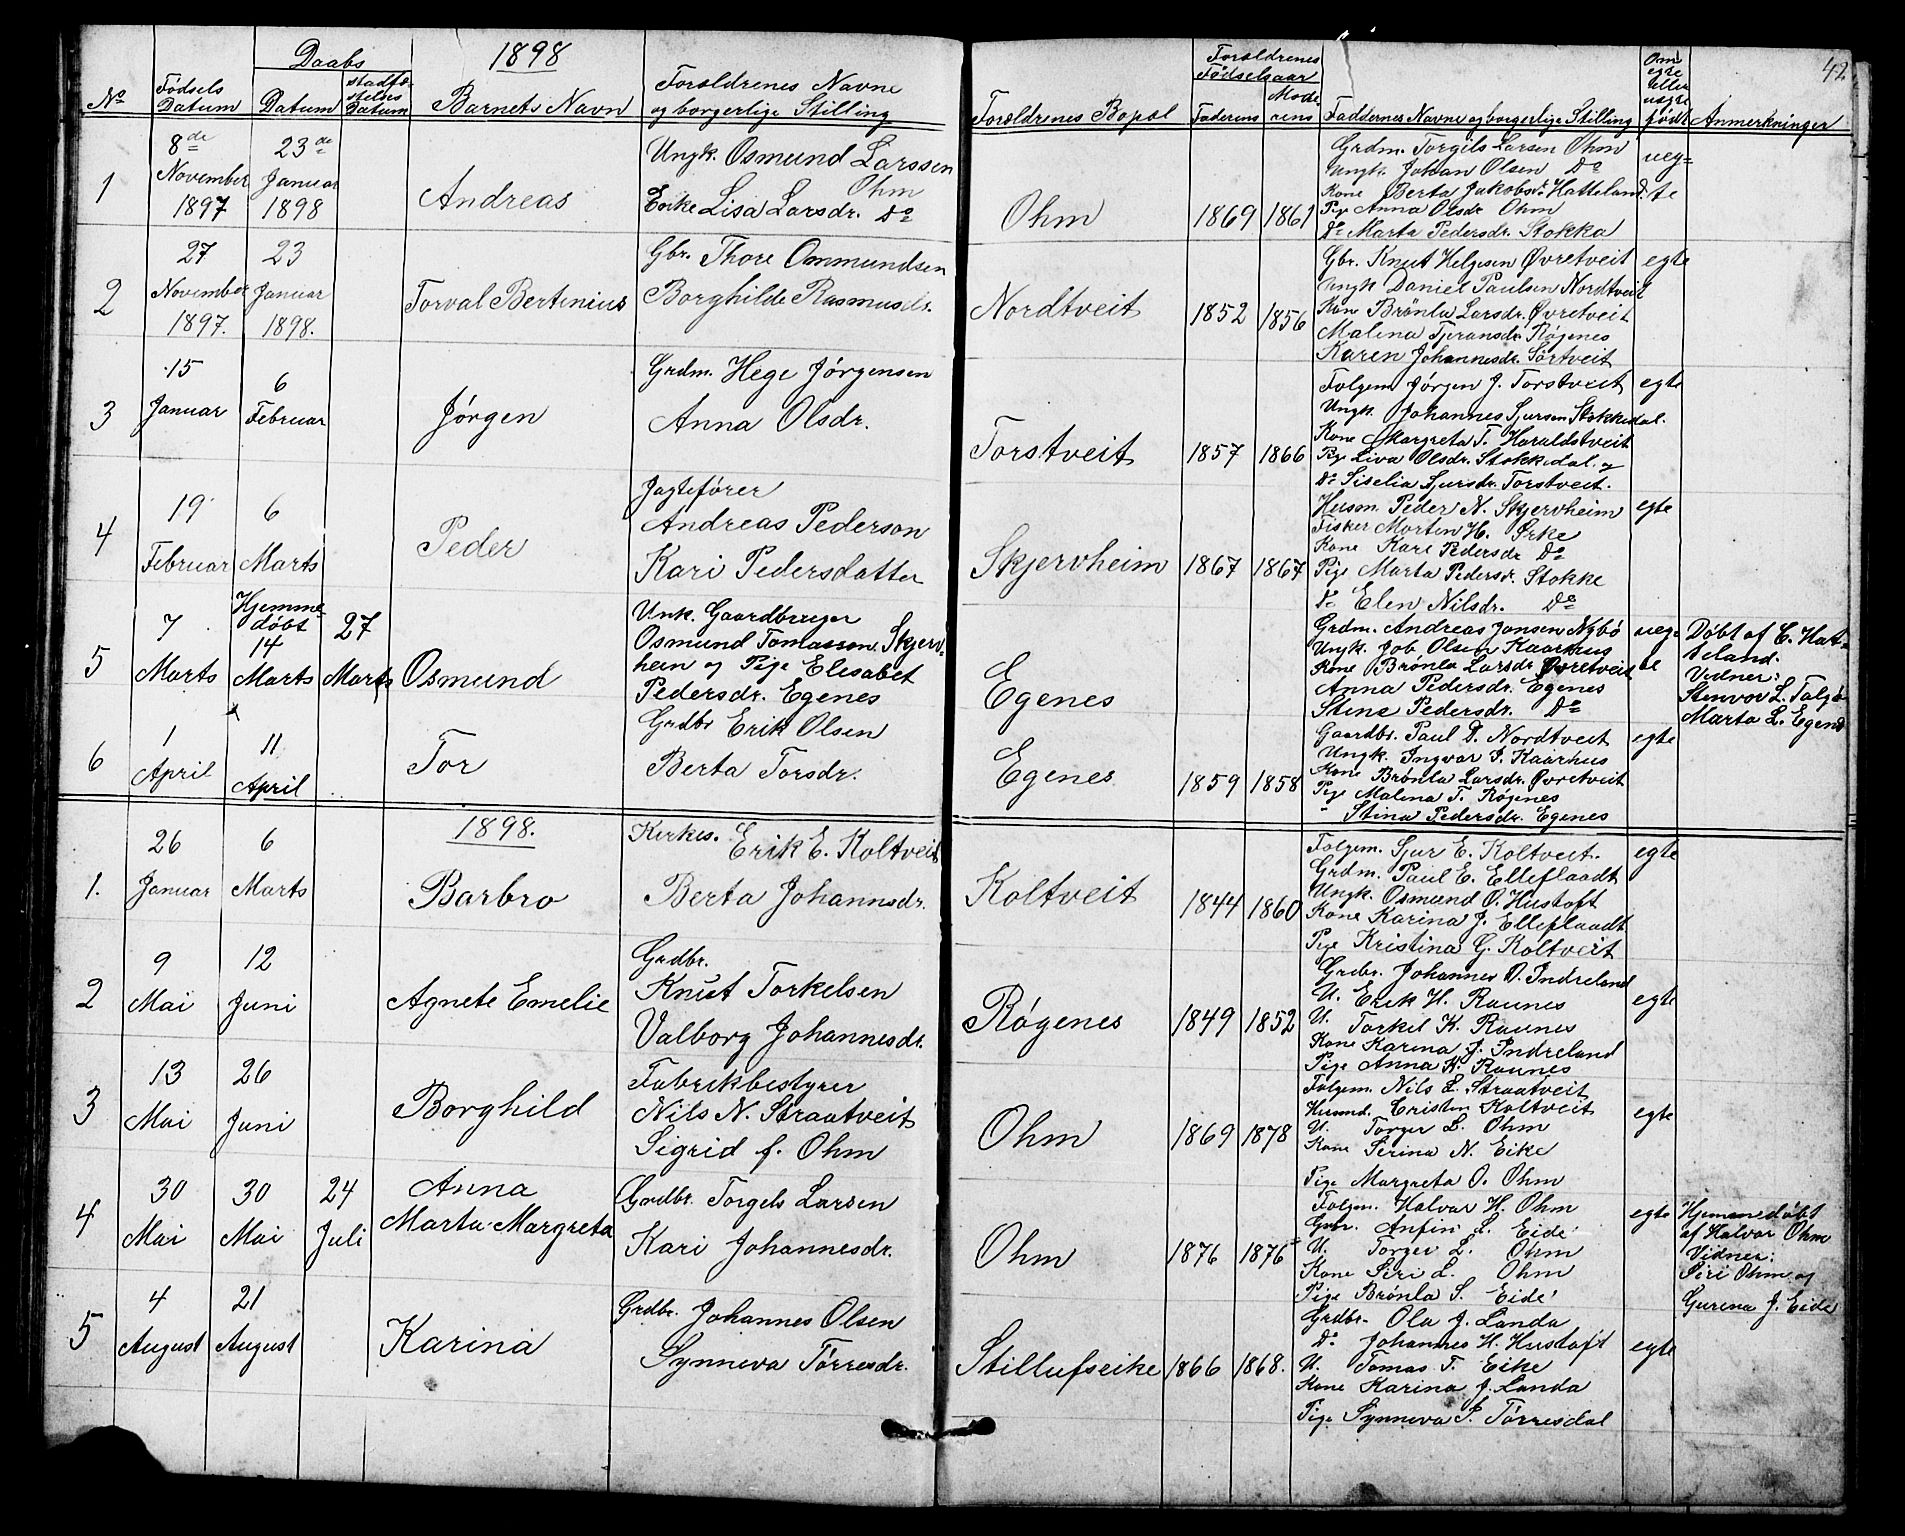 42
1898
Daabs
No
Fødsels Datum
Datum
stadfæstelses Datum
Barnets Navn
Forældrenes Navne
og borgerlige Stilling
Forældrenes Bopæl
Forældrenes
Fødselsaar
Faderens
Moderens
Faddernes Navne og borgerlige Stilling
Om egte eller uegte født
Anmerkninger
1
8de
November
1897
23de
Januar
1898
Andreas
Ungk. Osmund Larssen
Ohm
Enke Lisa Larsdr. Do
Ohm
1869
1861
Grdm. Torgils Larsen Ohm
Ungk. Johan Olsen Do
Kone Berta Jakobsdr. Hatteland
Pige Anna Olsdr Ohm
Do Marta Pedersdr. Stokka
ueg=
te
2
27
November
1897.
23
Januar
1898.
Torval Bertinius
Gbr. Thore Ommundsen
Borghilde Rasmusdr.
Nordtveit
1852
1856
Gbr. Knut Helgesen Øvretveit
Ungk Daniel Paulsen Nordtveit
Kone Brønla Larsdr. Øvretveit
Malena Tjeransdr. Røgenes
Karen Johannesdr. Sørtveit
egte
3
15
Januar
6
Februar
Jørgen
Grdm. Hege Jørgensen
Anna Olsdr.
Torstveit
1857
1866
Folgem. Jørgen J. Torstveit
Ungk. Johannes Sjursen Stokkedal.
Kone Margreta T. Haraldstveit
Pige Liva Olsdr. Stokkedal. og
Do Siselia Sjursdr. Torstveit.
egte
4
19
Februar
6
Marts
Peder
Jagtefører
Andreas Pederson
Kari Pedersdatter
Skjervheim
1867
1867
Husm. Peder N. Skjervheim
Fisker Morten H. Ørke
Kone Kari Pedersdr Do
Pige Marta Pedersdr. Stokke
Do Elen Nilsdr. Do
egte
5
7
Marts
Hjemme
døbt
14
Marts
27
Marts
Osmund
Unk. Gaardbruger
Osmund Tomassen Skjerv-
heim og Pige Elisabet
Pedersdr. Egenes
Egenes
Grdm. Andreas Jansen Nybø
Ungk. Job Olsen Kaarhus
Kone Brønla Larsdr Øvretveit
Anna Pedersdr. Egenes
Stine Pedersdr. Do
ueg-
te
Døbt af C. Hat-
teland.
Vidner:
Stenvor L. Talgø
Marta L. Egenes
6
1
April
11
April
Tor
Grdbr Erik Olsen
Berta Torsdr.
Egenes
1859
1858
Gaardbr. Paul D. Nordtveit
Ungk. Ingvar J. Kaarhus
Kone Brønla Larsdr. Øvretveit
Pige Malena T. Røgenes
" Stina Pedersdr. Egenes
egte
1898.
1.
26
Januar
6
Marts
Barbro
Kirkes. Erik E. Koltveit
Berta Johannsdr.
Koltveit
1844
1860
Folgem. Sjur E. Koltveit.
Grdm. Paul E. Elleflaadt
Ungk. Osmund O. Hustoft
Kone Karina J. Elleflaadt
Pige Kristina G. Koltveit
egte
2
9
Mai
12
Juni
Agnete Emelie
Grdbr.
Knut Torkelsen
Valborg Johannesdr.
Røgenes
1849
1852
Grdbr. Johannes O. Indreland
U. Erik H. Raunes
U. Torkel K. Raunes
Kone Karina J. Indreland
Pige Anna K. Raunes
egte
3
13
Mai
26
Juni
Borghild
Fabrikbestyrer
Nils N. Straatveit
Sigrid f. Ohm
Ohm
1869
1878
Folgem. Nils L. Straatveit
Husmd. Cristen Koltveit
U. Torger L. Ohm
Kone Serina N. Eike
Pige Margreta O. Ohm
egte
4
30
Mai
30
Mai
24
Juli
Anna
Marta-Margreta
Grdbr. Torgels Larsen
Kari Johannesdr.
Ohm
1876
1876
Folgem. Halvar H. Ohm
Gbr. Anfin L. Eide
U. Torger L. Ohm
Kone Siri L. Ohm
Pige Brønla S. Eide
egte
Hjemmedøbt
af Halvor Ohm
Vidner:
Siri Ohm og
Gurena J. Eide
5
4
August
21
August
Karina
Grdbr. Johannes Olsen
Synneva Tørresdr.
Stillufseike
1866
1868.
Grdbr. Ola J. Landa
Do Johannes H. Hustoft
U. Tomas T. Eike
Kone Karina J. Landa
Pige Synneva S. Tørresdal
egte